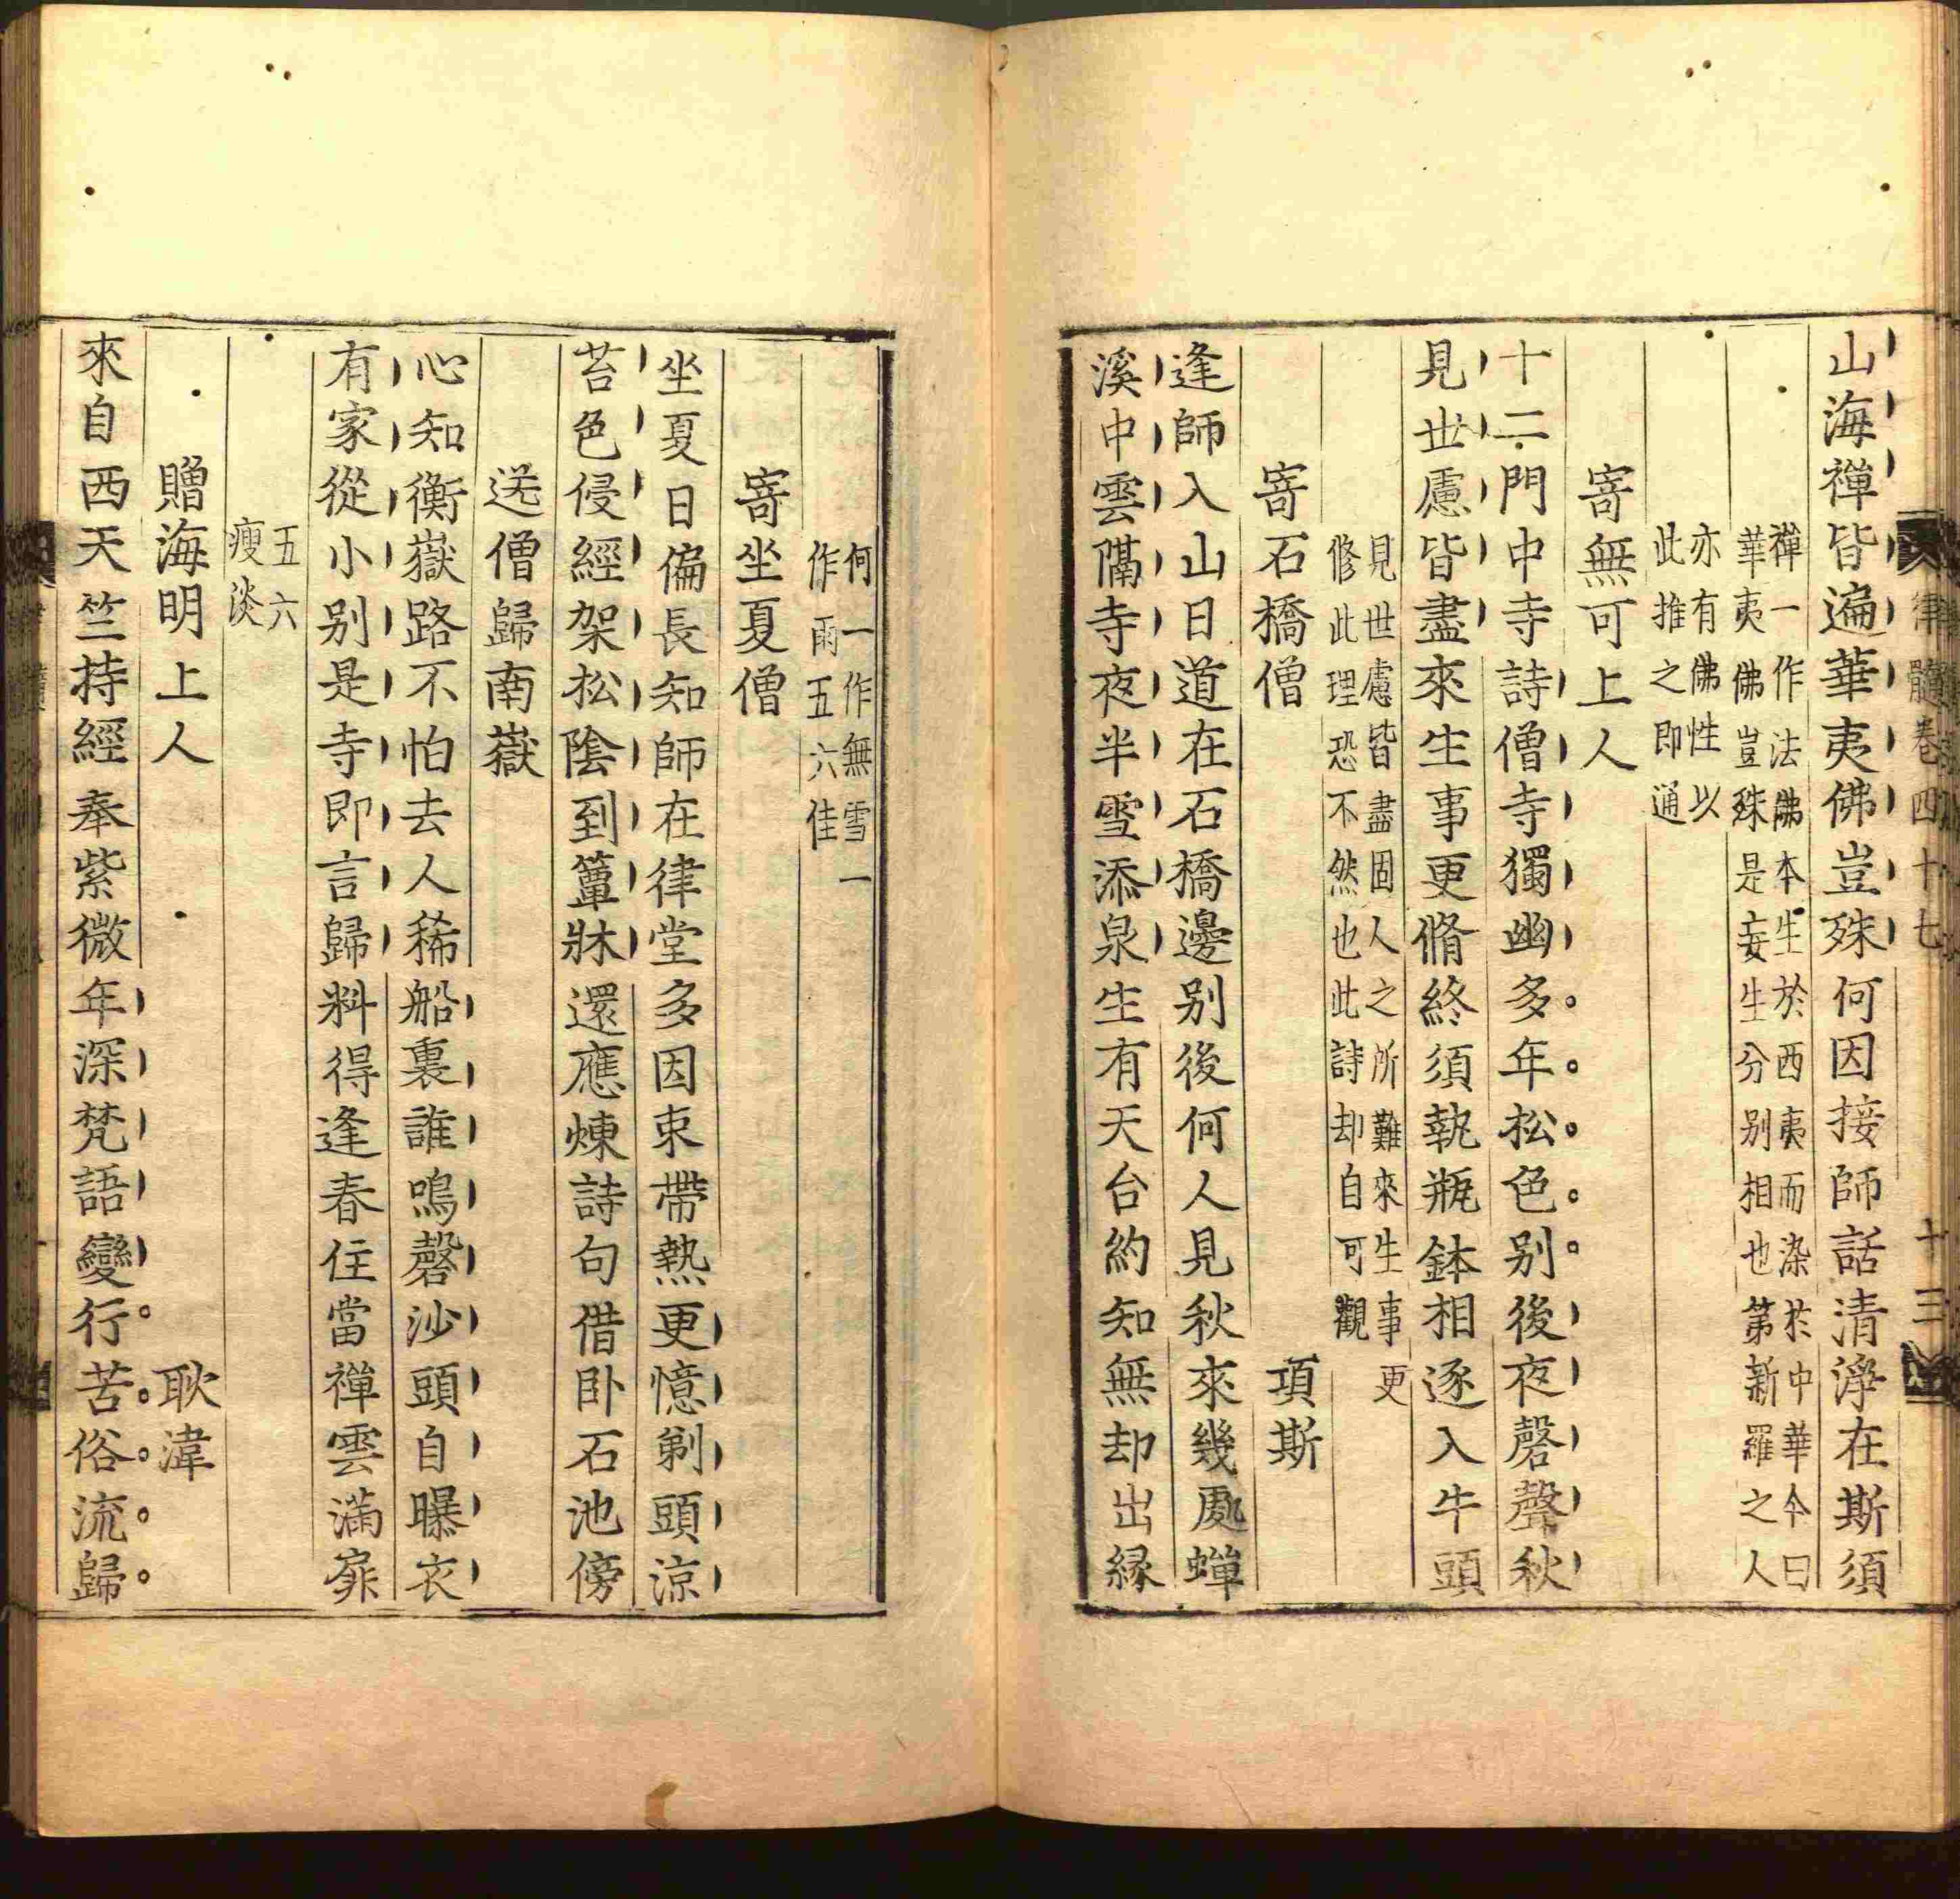 律髓卷四十七
十三
山海禪皆遍華夷佛豈殊何因接師話清淨在斯須
禪一作法佛本生於西夷而染於中華今曰
華夷佛豈殊是妄生分别相也第新羅之人
亦有佛性以
此推之即通
寄無可上人
十二門中寺詩僧寺獨幽多年松色别後夜磬聲秋
見世慮皆盡來生事更脩終須執瓶鉢相逐入牛頭
見世慮皆盡固人之所難來生事更
修此理恐不然也此詩却自可觀
寄石橋僧 項斯
逢師入山日道在石橋邊别後何人見秋來幾處蟬
溪中雲隔寺夜半雪添泉生有天台約知無却出緣
何一作無雪一
作雨五六佳
寄坐夏僧
坐夏日偏長知師在律堂多因束帶熱更憶剃頭涼
苔色侵經架松陰到簟牀還應煉詩句借卧石池傍
送僧歸南嶽
心知衡嶽路不怕去人稀船裏誰鳴磬沙頭自曝衣
有家從小别是寺即言歸料得逢春住當禪雲滿扉
五六
瘦淡
贈海明上人 耿湋
來自西天竺持經奉紫微年深梵語變行苦俗流歸